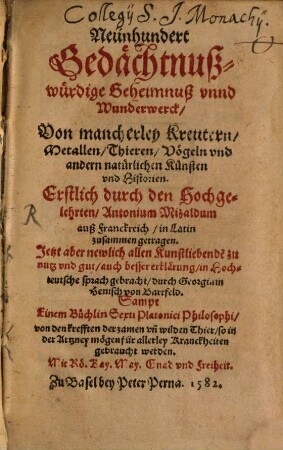 Collegij S. J. Monachij.
Neünhundert
Gedächtnuß-
würdige Geheimnuß vnnd
Wunderwerck/
Von mancherley Kreutern/
Metallen/ Thieren/ Vögeln vnd
andern natürlichen Künsten
vnd Historien.
Erstlich durch den Hochge-
lehrten/ Antonium Mizaldum
auß Franckreich/ in Latin
zusammen getragen.
Jetzt aber newlich allen Kunstliebendẽ zu
nutz vnd gut/ auch besser erklärung/ in Hoch-
teutsche sprach gebracht/ durch Georgium
Henisch von Bartfeld.
Sampt
Einem Büchlin Sexti Platonici Philosophi/
von den krefften der zamen vñ wilden Thier/ so in
der Artzney mögen für allerley Kranckheiten
gebraucht werden.
Mit Rö. Kay. May. Gnad vnd Freiheit.
Zu Basel bey Peter Perna. 1582.